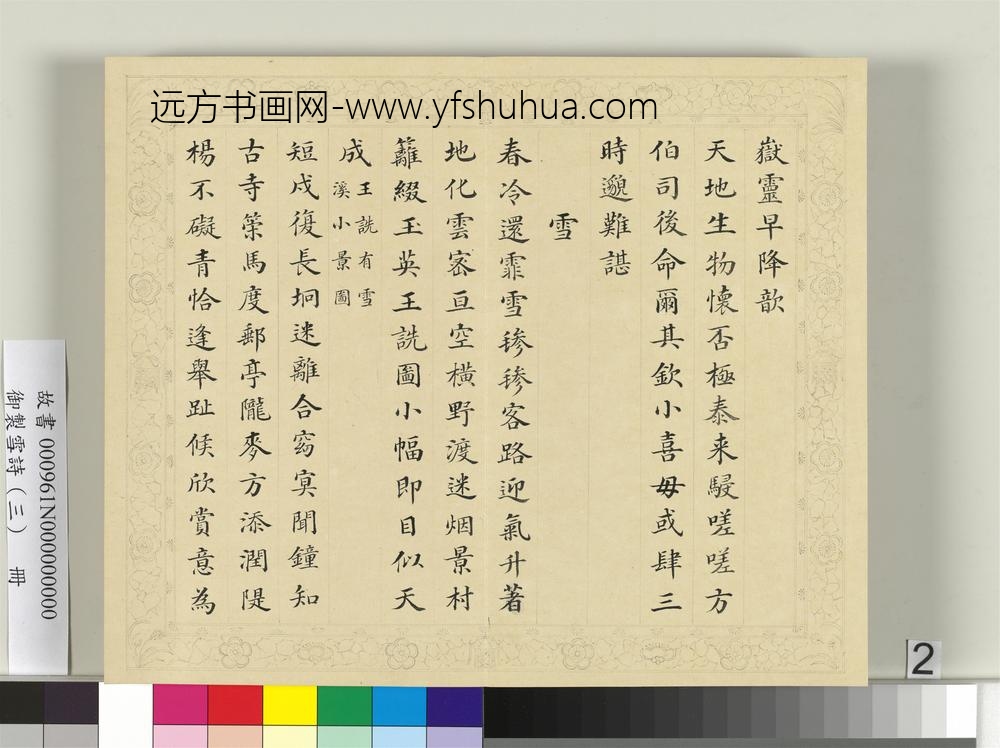 远方书画网-www.yfshuhua.com
嶽靈早降歆
天地生物懷否極泰来騐嗟嗟方
伯司後命爾其欽小喜毋或肆三
時邈難諶
雪
春冷還霏雪䅟䅟客路迎氣升著
地化雲宻亘空橫野渡迷烟景村
籬綴玉英王詵圖小幅即目似天
成
王詵有雪
溪小景圖
短戍復長坰迷離合窈㝠聞鐘知
古寺策馬度郵亭隴麥方添潤隄
楊不礙青恰逢舉趾候欣賞意為
故書 000961N000000000
御製雪詩(三) 冊
2